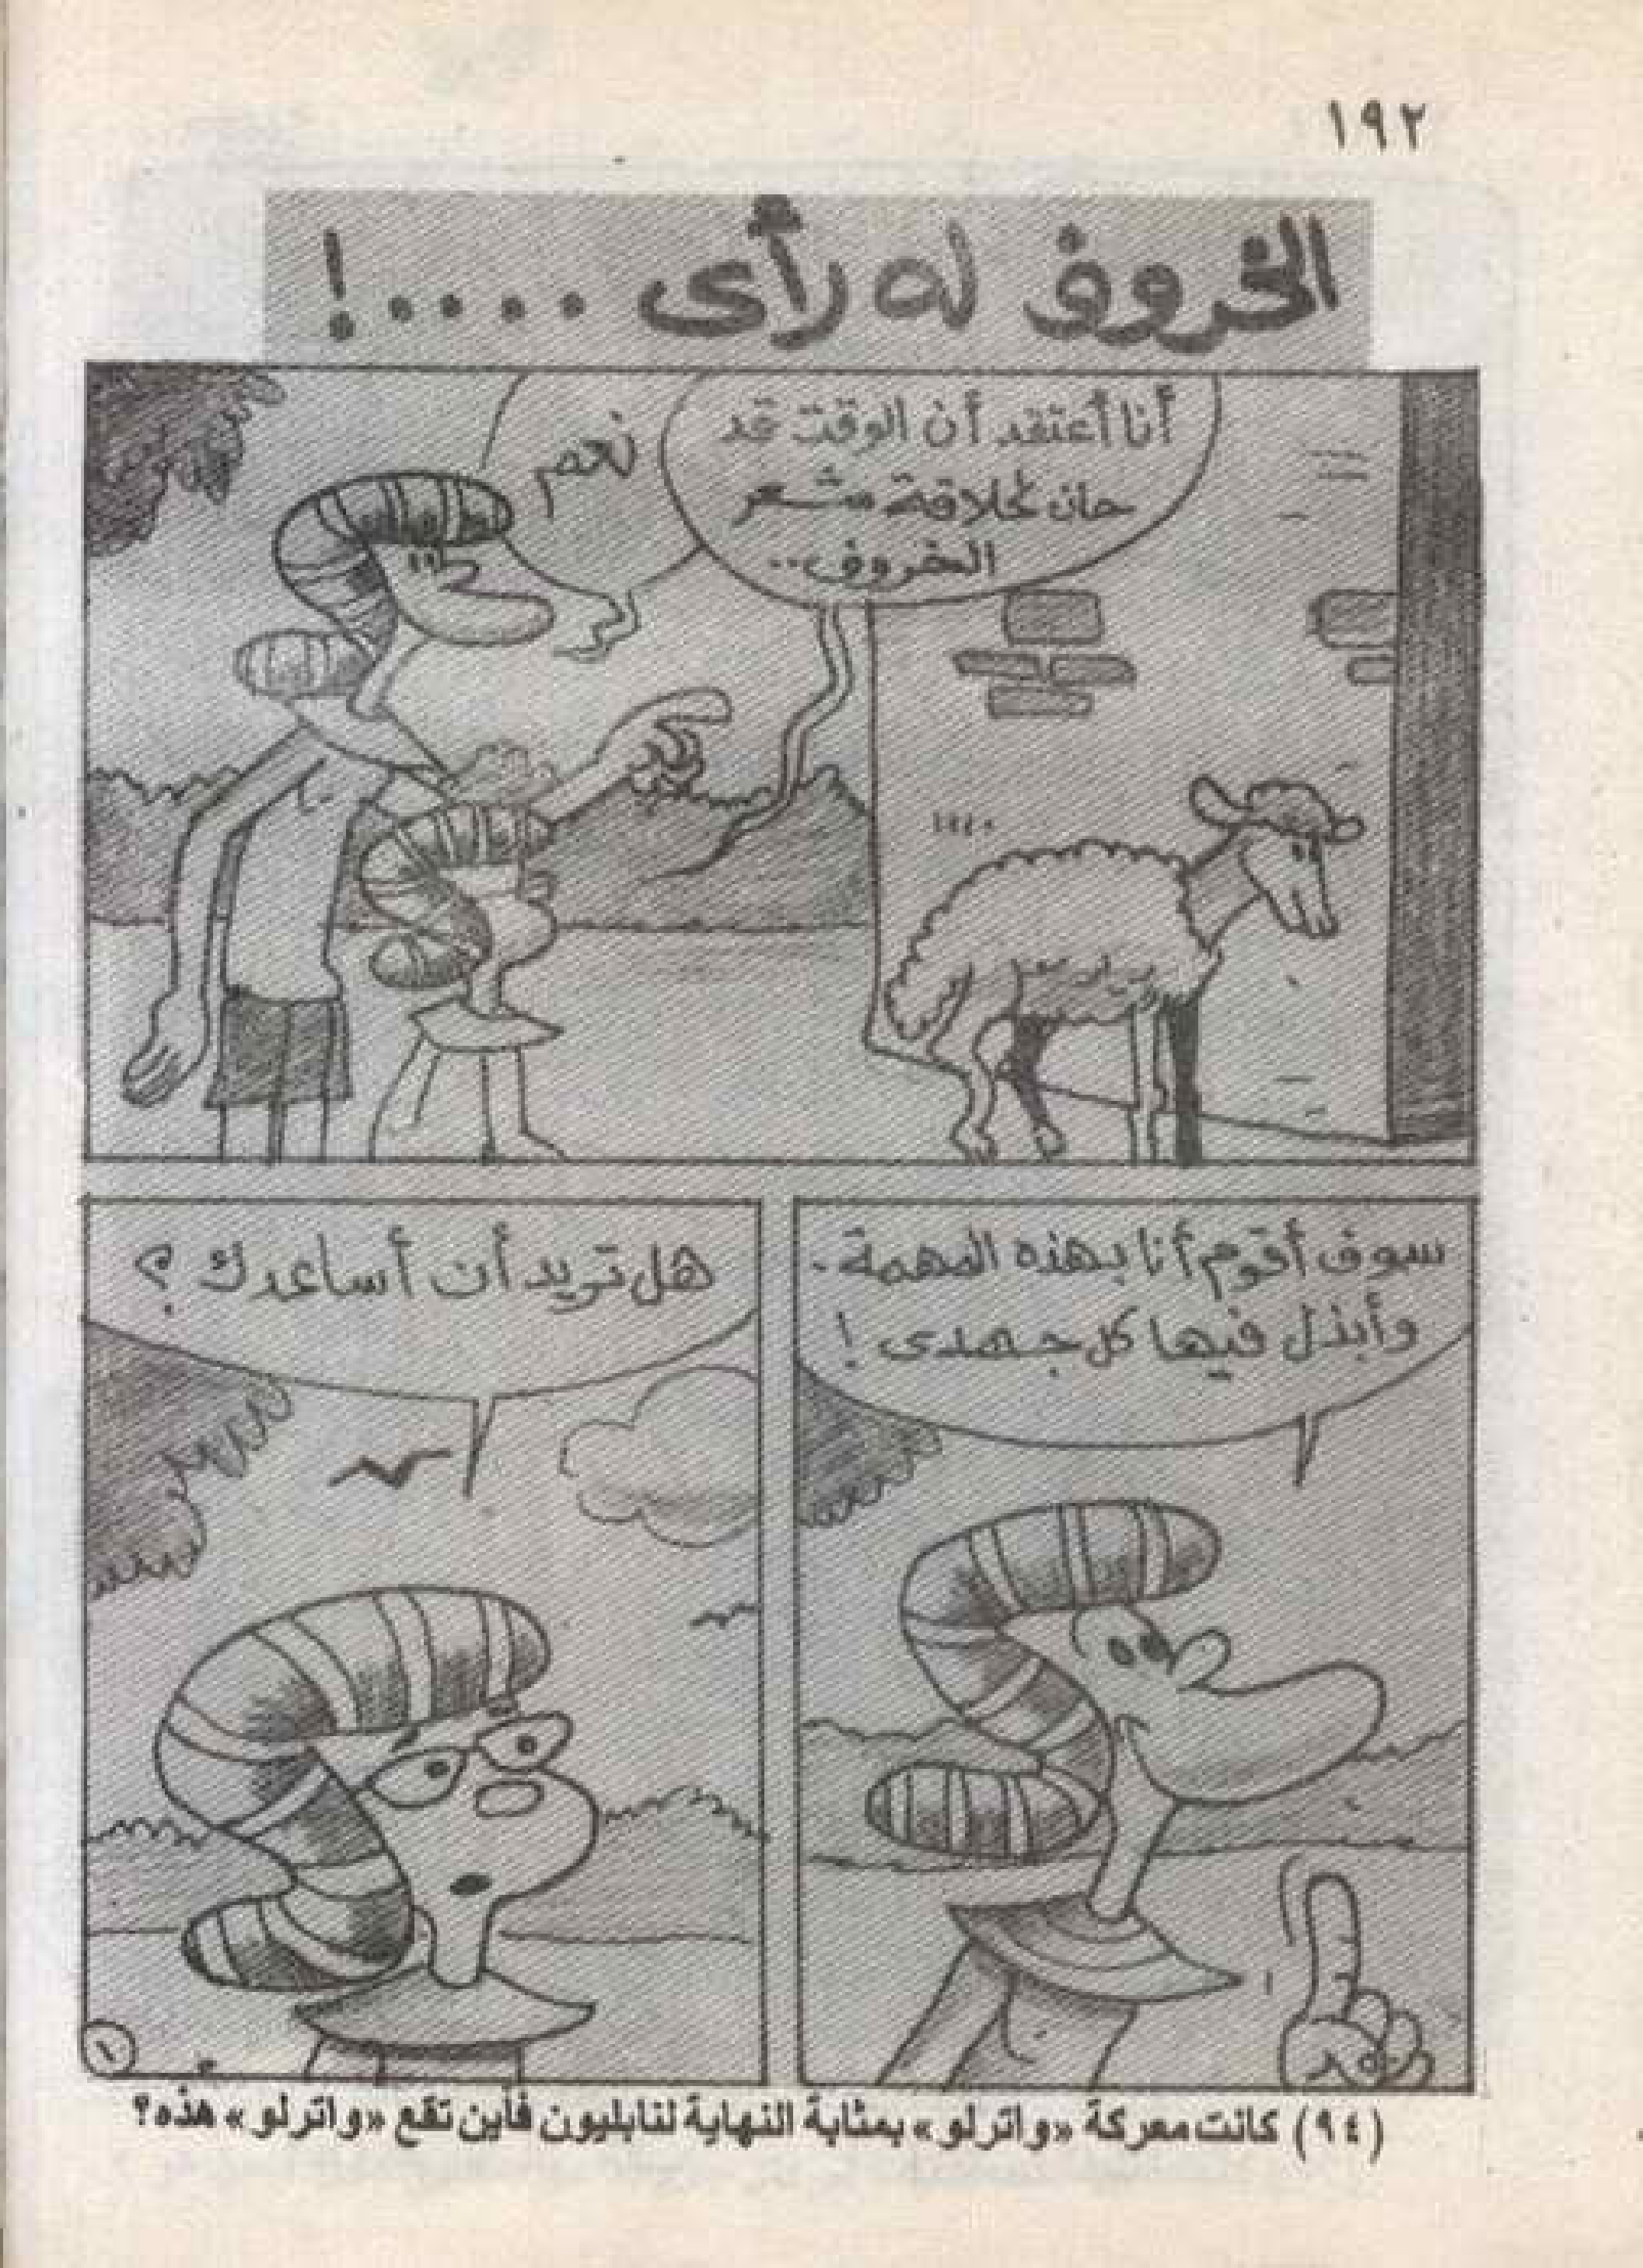 ١٩٢
الخروف له رأى ....!
أنا أعتقد أن الوقت قد
حان لحلاقة شعر
الخروف..
نعم
سوف أقوم أنا بهذه المهمة.
وأبذل فيها كل جهدى !
هل تريد أن أساعدك ؟
١
(٩٤) كانت معركة «واترلو» بمثابة النهاية لنابليون فأين تقع «واترلو» هذه؟